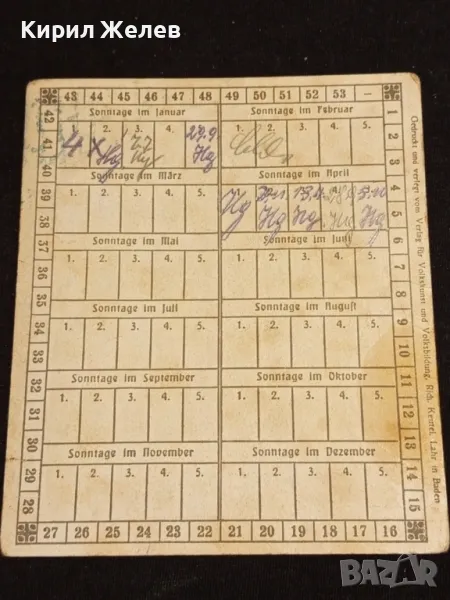 Кирил Желев
43 44 45 46 47 48 49 50 51 52 53 –
Sonntage im Januar
2. 3. 4.
4 x Hg 27.9 Hg
Sonntage im Februar
1. 2. 3. 4. 5.
Sonntage im März
1. 2. 3. 4. 5.
Sonntage im April
Hg Hg Hg Hg Hg
Sonntage im Mai
1. 2. 3. 4. 5.
Sonntage im Juni
1. 2. 3. 4. 5.
Sonntage im Juli
1. 2. 3. 4. 5.
Sonntage im August
1. 2. 3. 4. 5.
Sonntage im September
1. 2. 3. 4. 5.
Sonntage im Oktober
1. 2. 3. 4. 5.
Sonntage im November
1. 2. 3. 4. 5.
Sonntage im Dezember
1. 2. 3. 4. 5.
42 41 40 39 38 37 36 35 34 33 32 31 30 29 28
27 26 25 24 23 22 21 20 19 18 17 16
1 2 3 4 5 6 7 8 9 10 11 12 13 14 15
Gedruckt und verlegt vom Verlag für Volkskunst und Volksbildung, Rich. Keutel, Lahr in Baden
BAZAR